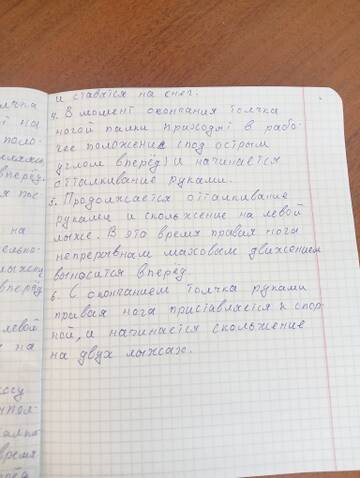 и ставятся на снег.
4. В момент окончания толчка
ногой палки приходят в рабо-
чее положение (под острым
углом вперёд) и начинается
отталкивание руками.
5. Продолжается отталкивание
руками и скольжение на левой
лыже. В это время правая нога
непрерывным маховым движением
выносится вперёд.
6. С окончанием толчка руками
правая нога приставляется к опор-
ной, и начинается скольжение
на двух лыжах.